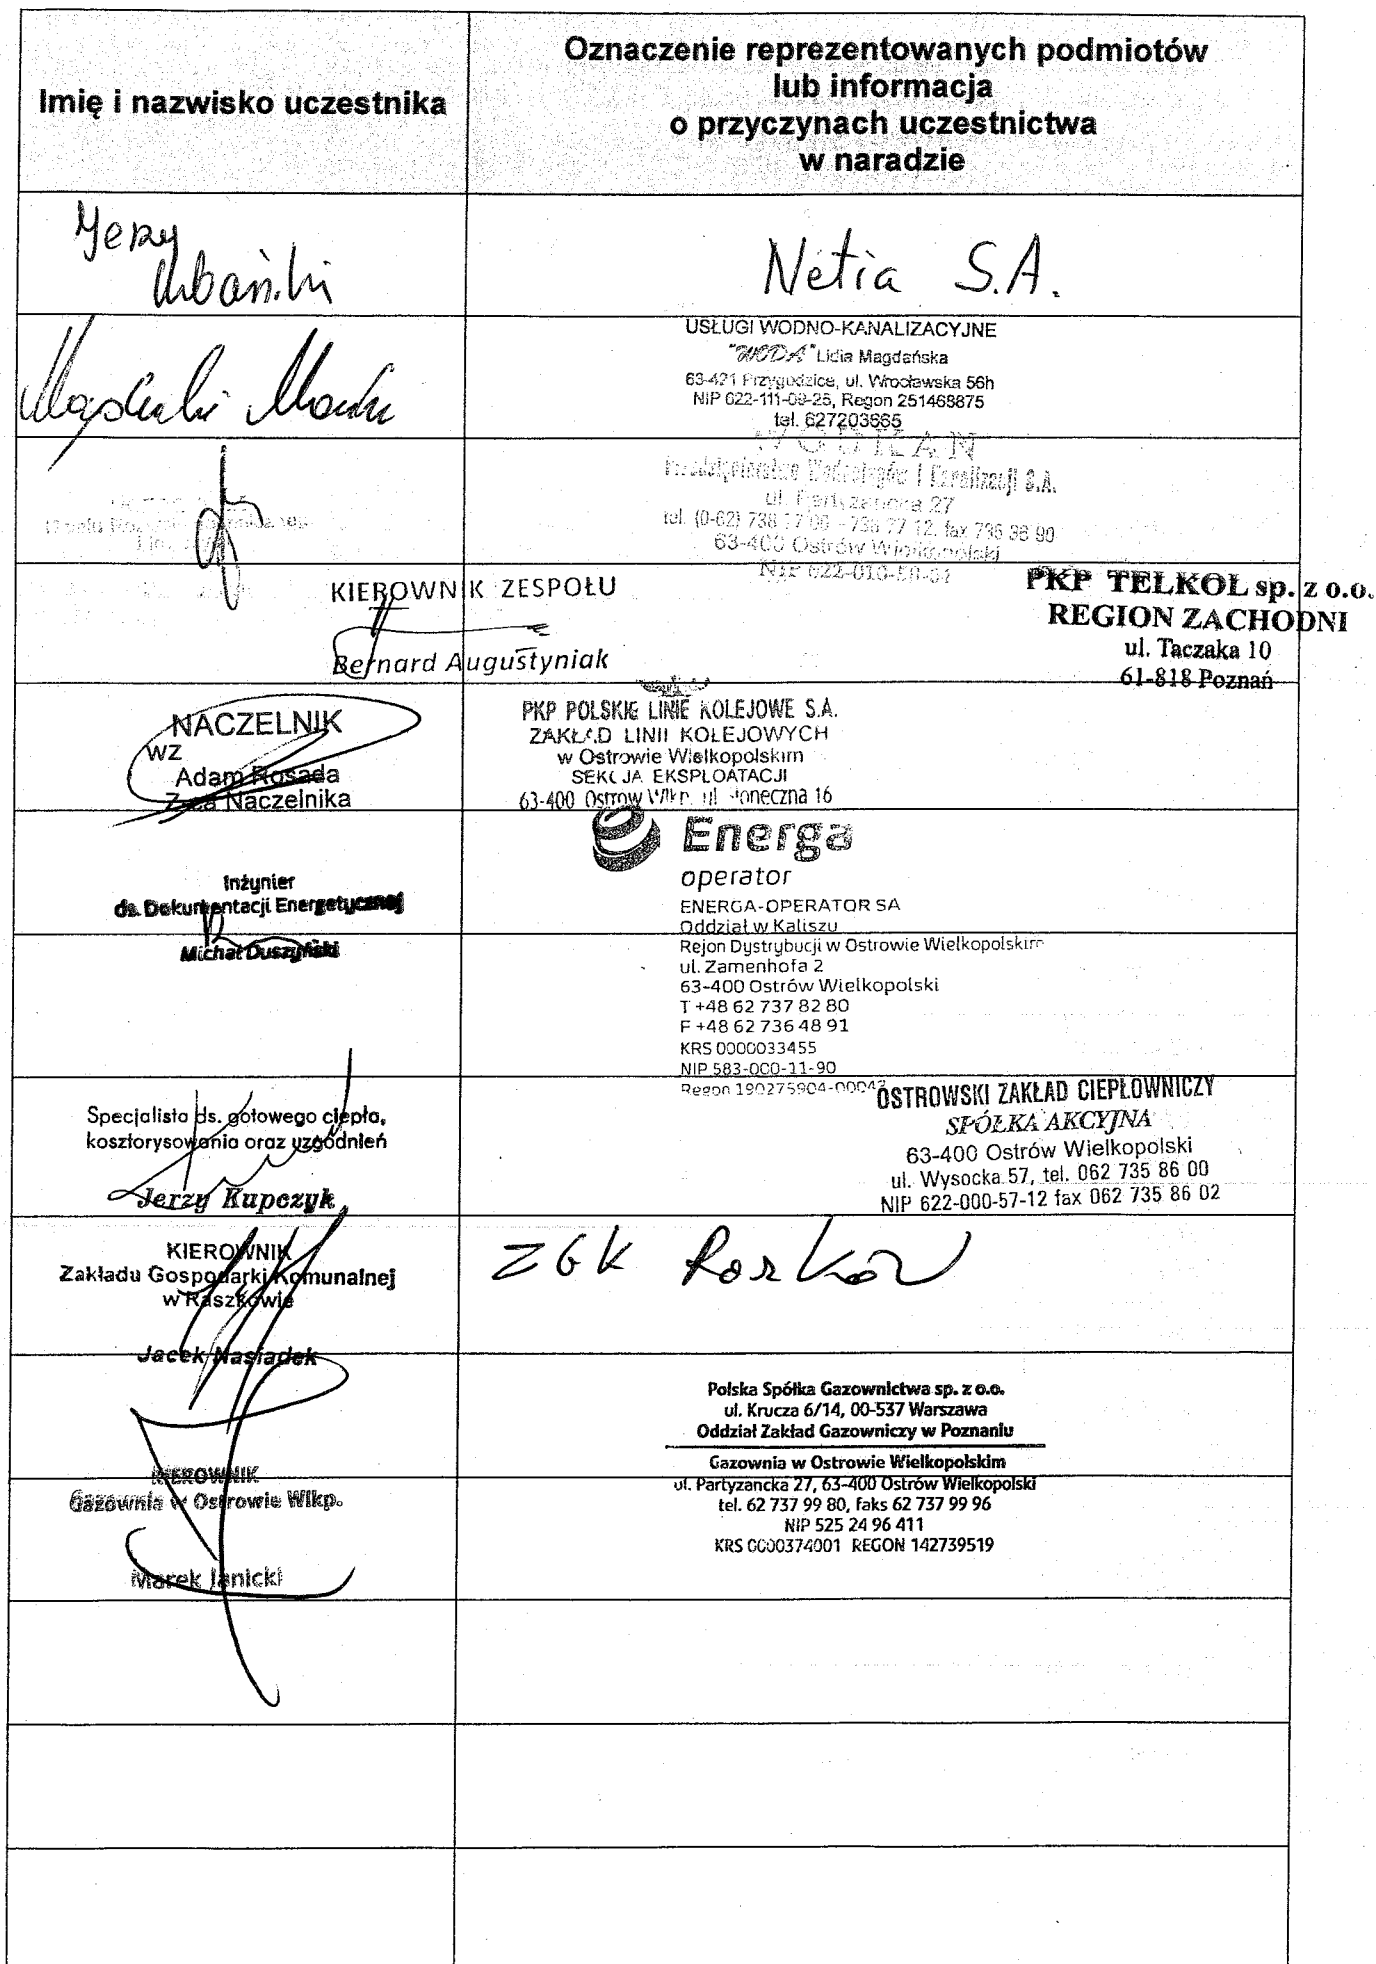 Imię i nazwisko uczestnika
Oznaczenie reprezentowanych podmiotów
lub informacja
o przyczynach uczestnictwa
w naradzie
Jerzy
Urbański
Netia S.A.
USŁUGI WODNO-KANALIZACYJNE
"WODA" Lidia Magdańska
63-421 Przygodzice, ul. Wrocławska 56h
NIP 622-111-09-25, Regon 251468875
tel. 627203665
WODKAN
Przedsiębiorstwo Wodociągów i Kanalizacji S.A.
ul. Partyzancka 27
tel. (0-62) 738 77 12, fax 736 36 90
63-400 Ostrów Wielkopolski
NIP 622-010-
KIEROWNIK ZESPOŁU
Bernard Augustyniak
PKP TELKOL sp. z o.o.
REGION ZACHODNI
ul. Taczaka 10
61-818 Poznań
NACZELNIK
wz
Adam Rosada
Z-ca Naczelnika
PKP POLSKIE LINIE KOLEJOWE S.A.
ZAKŁAD LINII KOLEJOWYCH
w Ostrowie Wielkopolskim
SEKCJA EKSPLOATACJI
63-400 Ostrów Wlkp. ul. Słoneczna 16
Inżynier
ds. Dokumentacji Energetycznej
Michał Duszyński
Energa
operator
ENERGA-OPERATOR SA
Oddział w Kaliszu
Rejon Dystrybucji w Ostrowie Wielkopolskim
ul. Zamenhofa 2
63-400 Ostrów Wielkopolski
T +48 62 737 82 80
F +48 62 736 48 91
KRS 0000033455
NIP 583-000-11-90
Regon 190275904-00043
Specjalista ds. gotowego ciepła,
kosztorysowania oraz uzgodnień
Jerzy Kupczyk
OSTROWSKI ZAKŁAD CIEPŁOWNICZY
SPÓŁKA AKCYJNA
63-400 Ostrów Wielkopolski
ul. Wysocka 57, tel. 062 735 86 00
NIP 622-000-57-12 fax 062 735 86 02
KIEROWNIK
Zakładu Gospodarki Komunalnej
w Raszkowie
Jacek Nasiadek
ZGK Raszków
KIEROWNIK
Gazownia w Ostrowie Wlkp.
Marek Janicki
Polska Spółka Gazownictwa sp. z o.o.
ul. Krucza 6/14, 00-537 Warszawa
Oddział Zakład Gazowniczy w Poznaniu
Gazownia w Ostrowie Wielkopolskim
ul. Partyzancka 27, 63-400 Ostrów Wielkopolski
tel. 62 737 99 80, faks 62 737 99 96
NIP 525 24 96 411
KRS 0000374001 REGON 142739519